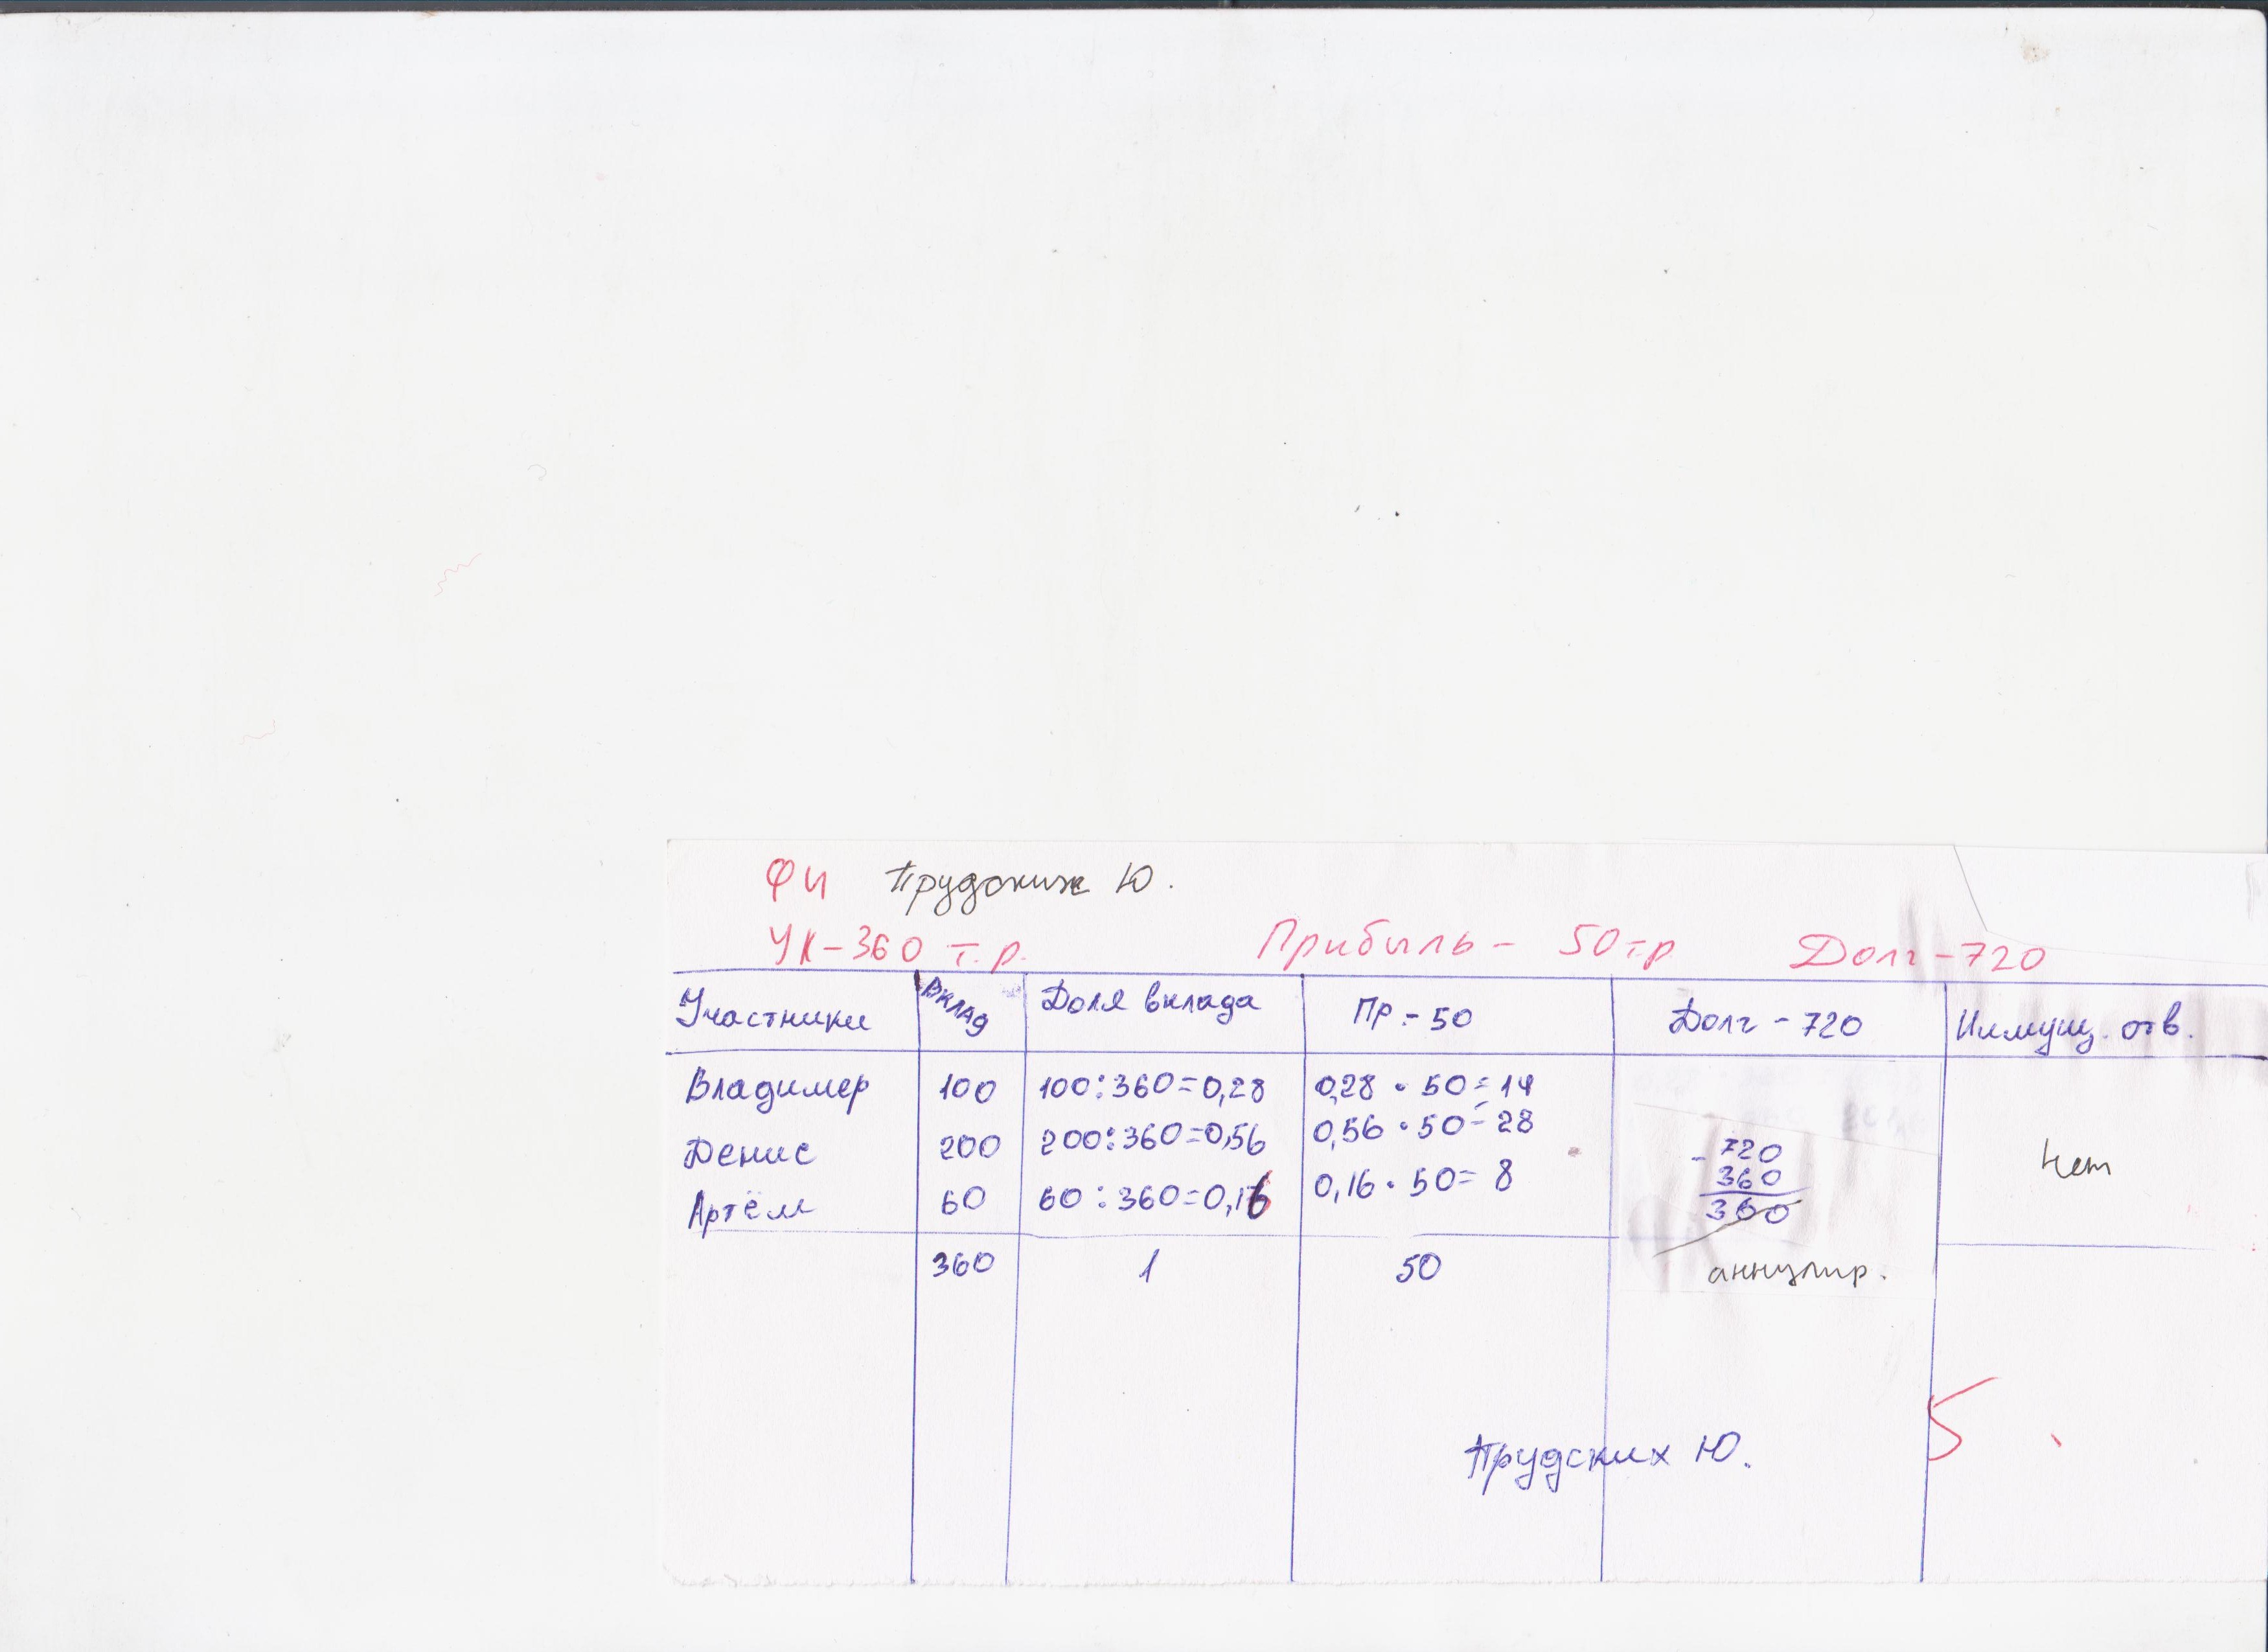 ФИ Прудских Ю.
УК-360 т.р. Прибыль - 50 т.р Долг - 720
Участники Вклад Доля вклада Пр.- 50 Долг - 720 Имущ. отв.
Владимер 100 100:360=0,28 0,28 · 50=14
Денис 200 200:360=0,56 0,56 · 50=28
Артём 60 60:360=0,16 0,16 · 50= 8
- 720
360
360
нет
360 1 50 аннулир.
5
Прудских Ю.